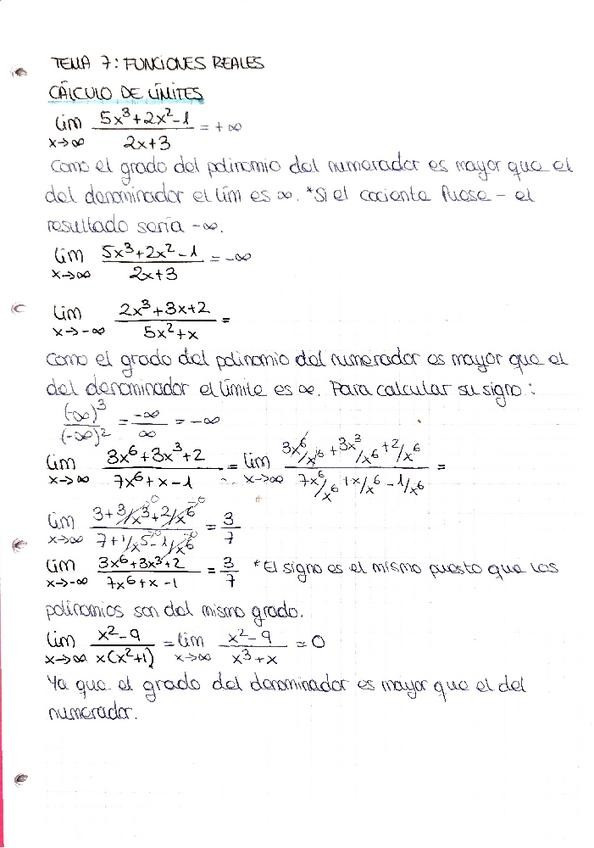 TEMA 7: FUNCIONES REALES
CÁLCULO DE LÍMITES
lim x→∞ (5x³+2x²-1)/(2x+3) = +∞
Como el grado del polinomio del numerador es mayor que el
del denominador el lím es ∞. *Si el cociente fuose – el
resultado sería -∞.
lim x→∞ (5x³+2x²-1)/(2x+3) = -∞
lim x→-∞ (2x³+3x+2)/(5x²+x) =
Como el grado del polinomio del numerador es mayor que el
del denominador el límite es ∞. Para calcular su signo:
(-∞)³/(-∞)² = -∞/∞ = -∞
lim x→∞ (3x⁶+3x³+2)/(7x⁶+x-1) = lim x→∞ (3x⁶/x⁶+3x³/x⁶+2/x⁶)/(7x⁶/x⁶+x/x⁶-1/x⁶) =
lim x→∞ (3+3/x³+2/x⁶)/(7+1/x⁵-1/x⁶) = 3/7
lim x→-∞ (3x⁶+3x³+2)/(7x⁶+x-1) = 3/7 *El signo es el mismo puesto que los
polinomios son del mismo grado.
lim x→∞ (x²-9)/(x(x²+1)) = lim x→∞ (x²-9)/(x³+x) = 0
Ya que el grado del denominador es mayor que el del
numerador.